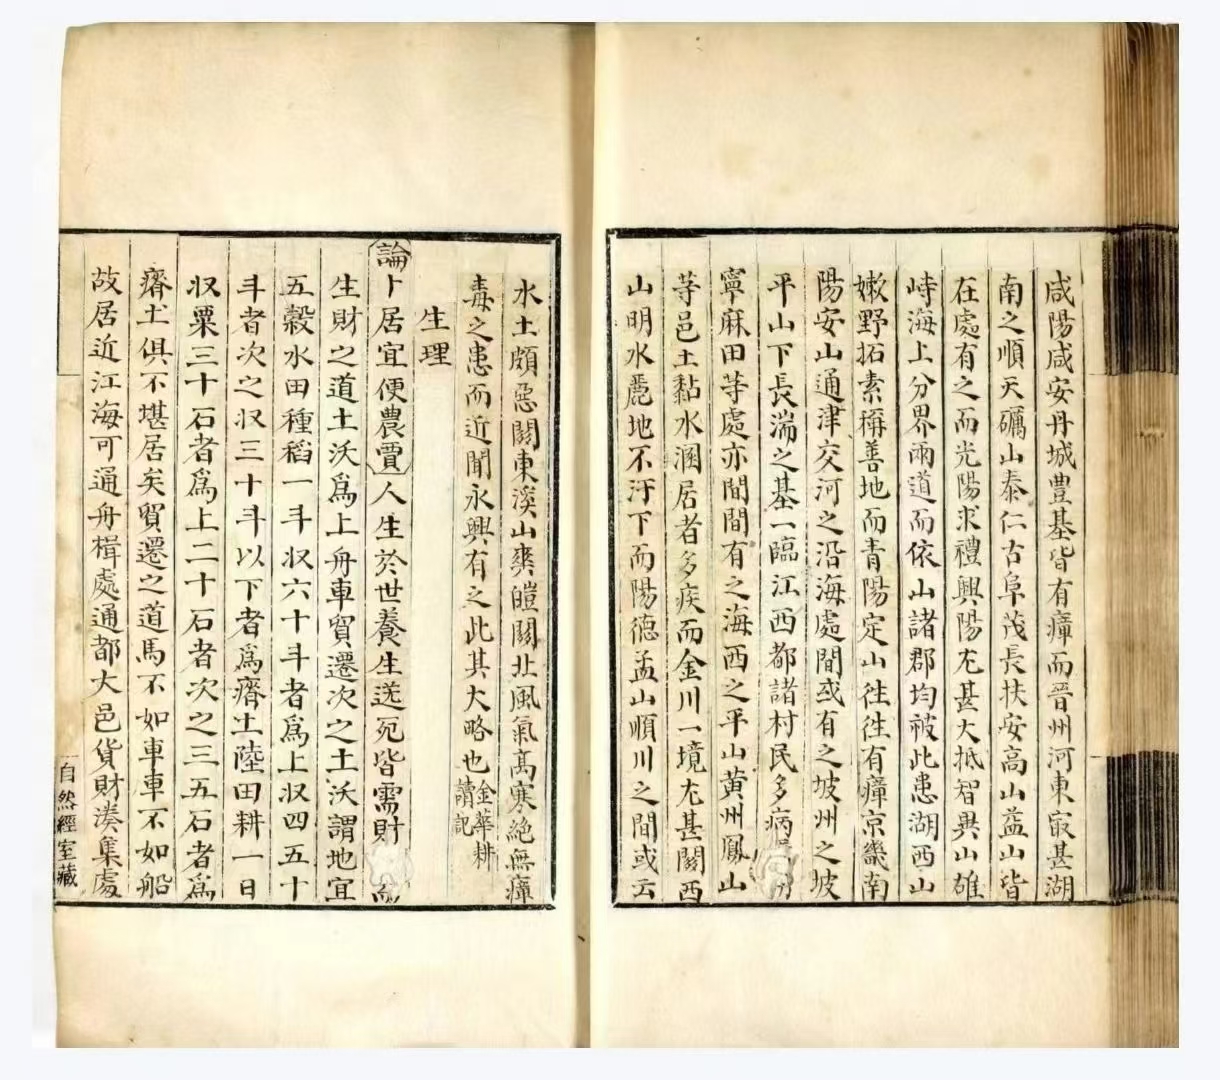 咸陽咸安丹城豊基皆有瘴而晉州河東㝡甚湖
南之順天礪山泰仁古阜茂長扶安高山益山皆
在處有之而光陽求禮興陽尤甚大抵智異山雄
峙海上分界兩道而依山諸郡均被此患湖西山
嫩野拓素稱善地而青陽定山徃徃有瘴京畿南
陽安山通津交河之沿海處間或有之坡州之坡
平山下長湍之基一臨江西都諸村民多病
寧麻田等處亦間間有之海西之平山黄州鳳山
等邑土黏水溷居者多疾而金川一境尤甚關西
山明水麗地不汙下而陽德孟山順川之間或云
水土頗惡關東溪山爽皚關北風氣高寒絶無瘴
毒之患而近聞永興有之此其大略也 金華耕讀記
生理
論卜居宜便農賈 人生於世養生送死皆需財而
生財之道土沃爲上舟車貿遷次之土沃謂地宜
五穀水田種稻一斗收六十斗者爲上收四五十
斗者次之收三十斗以下者爲瘠土陸田耕一日
收粟三十石者爲上二十石者次之三五石者爲
瘠土俱不堪居矣貿遷之道馬不如車車不如船
故居近江海可通舟楫處通都大邑貨財湊集處
自然經室藏